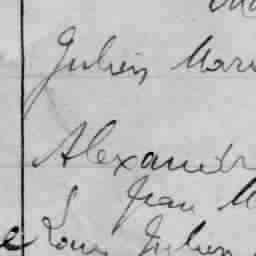 Julien Mari
Alexandr
Jean M
Louis Julien